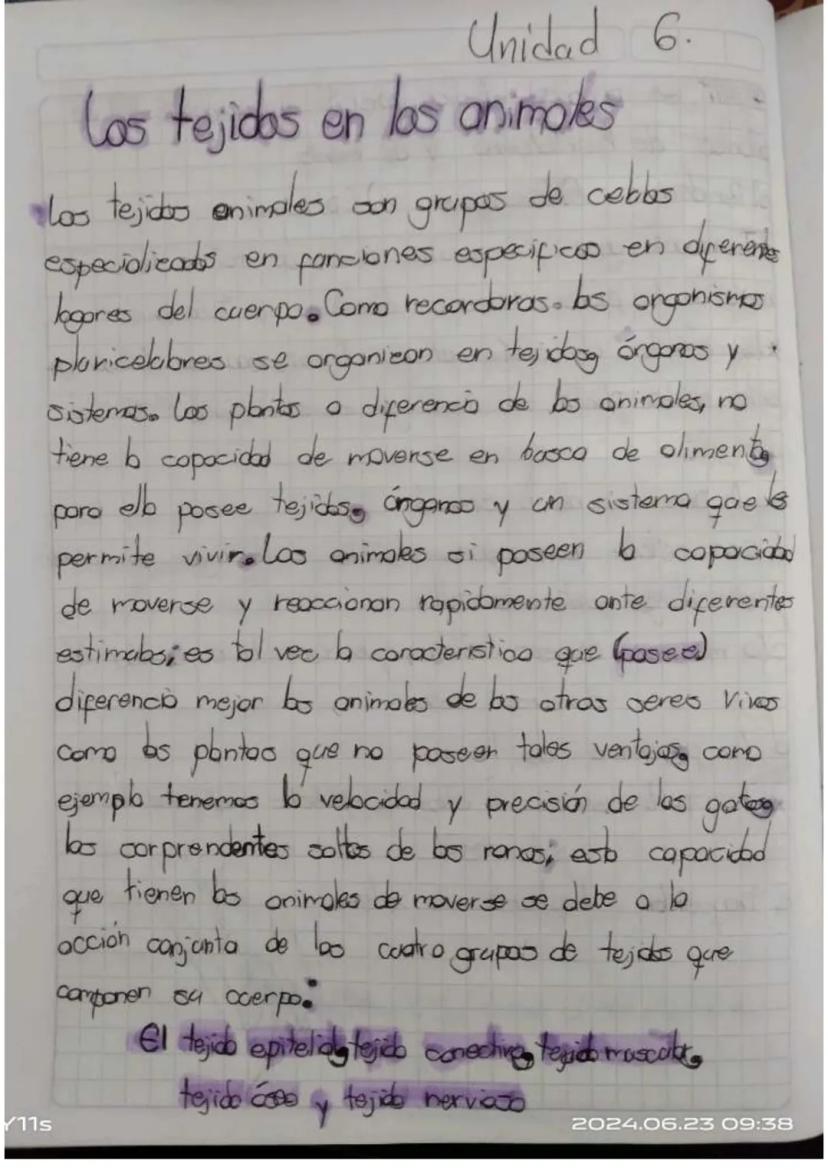 Unidad 6.
Los tejidos en los animales
Los tejidos animales son grupos de celulas
especializados en funciones especificas en diferentes
lugares del cuerpo. Como recordaras. los organismos
pluricelulares se organizan en tejidos, órganos y
sistemas. Las plantas a diferencia de los animales, no
tiene la capacidad de moverse en busca de alimento,
para ello posee tejidos, órganos y un sistema que les
permite vivir. Los animales si poseen la capacidad
de moverse y reaccionan rapidamente ante diferentes
estimulos; es tal vez la caracteristica que (posee)
diferencia mejor los animales de los otros seres vivos
como las plantas que no poseen tales ventajas, como
ejemplo tenemos la velocidad y precisión de los gatos,
los sorprendentes saltos de las ranas; esta capacidad
que tienen los animales de moverse se debe a la
acción conjunta de los cuatro grupos de tejidos que
componen su cuerpo:
El tejido epitelial, tejido conectivo, tejido muscular,
tejido óseo y tejido nervioso
Y11s
2024.06.23 09:38